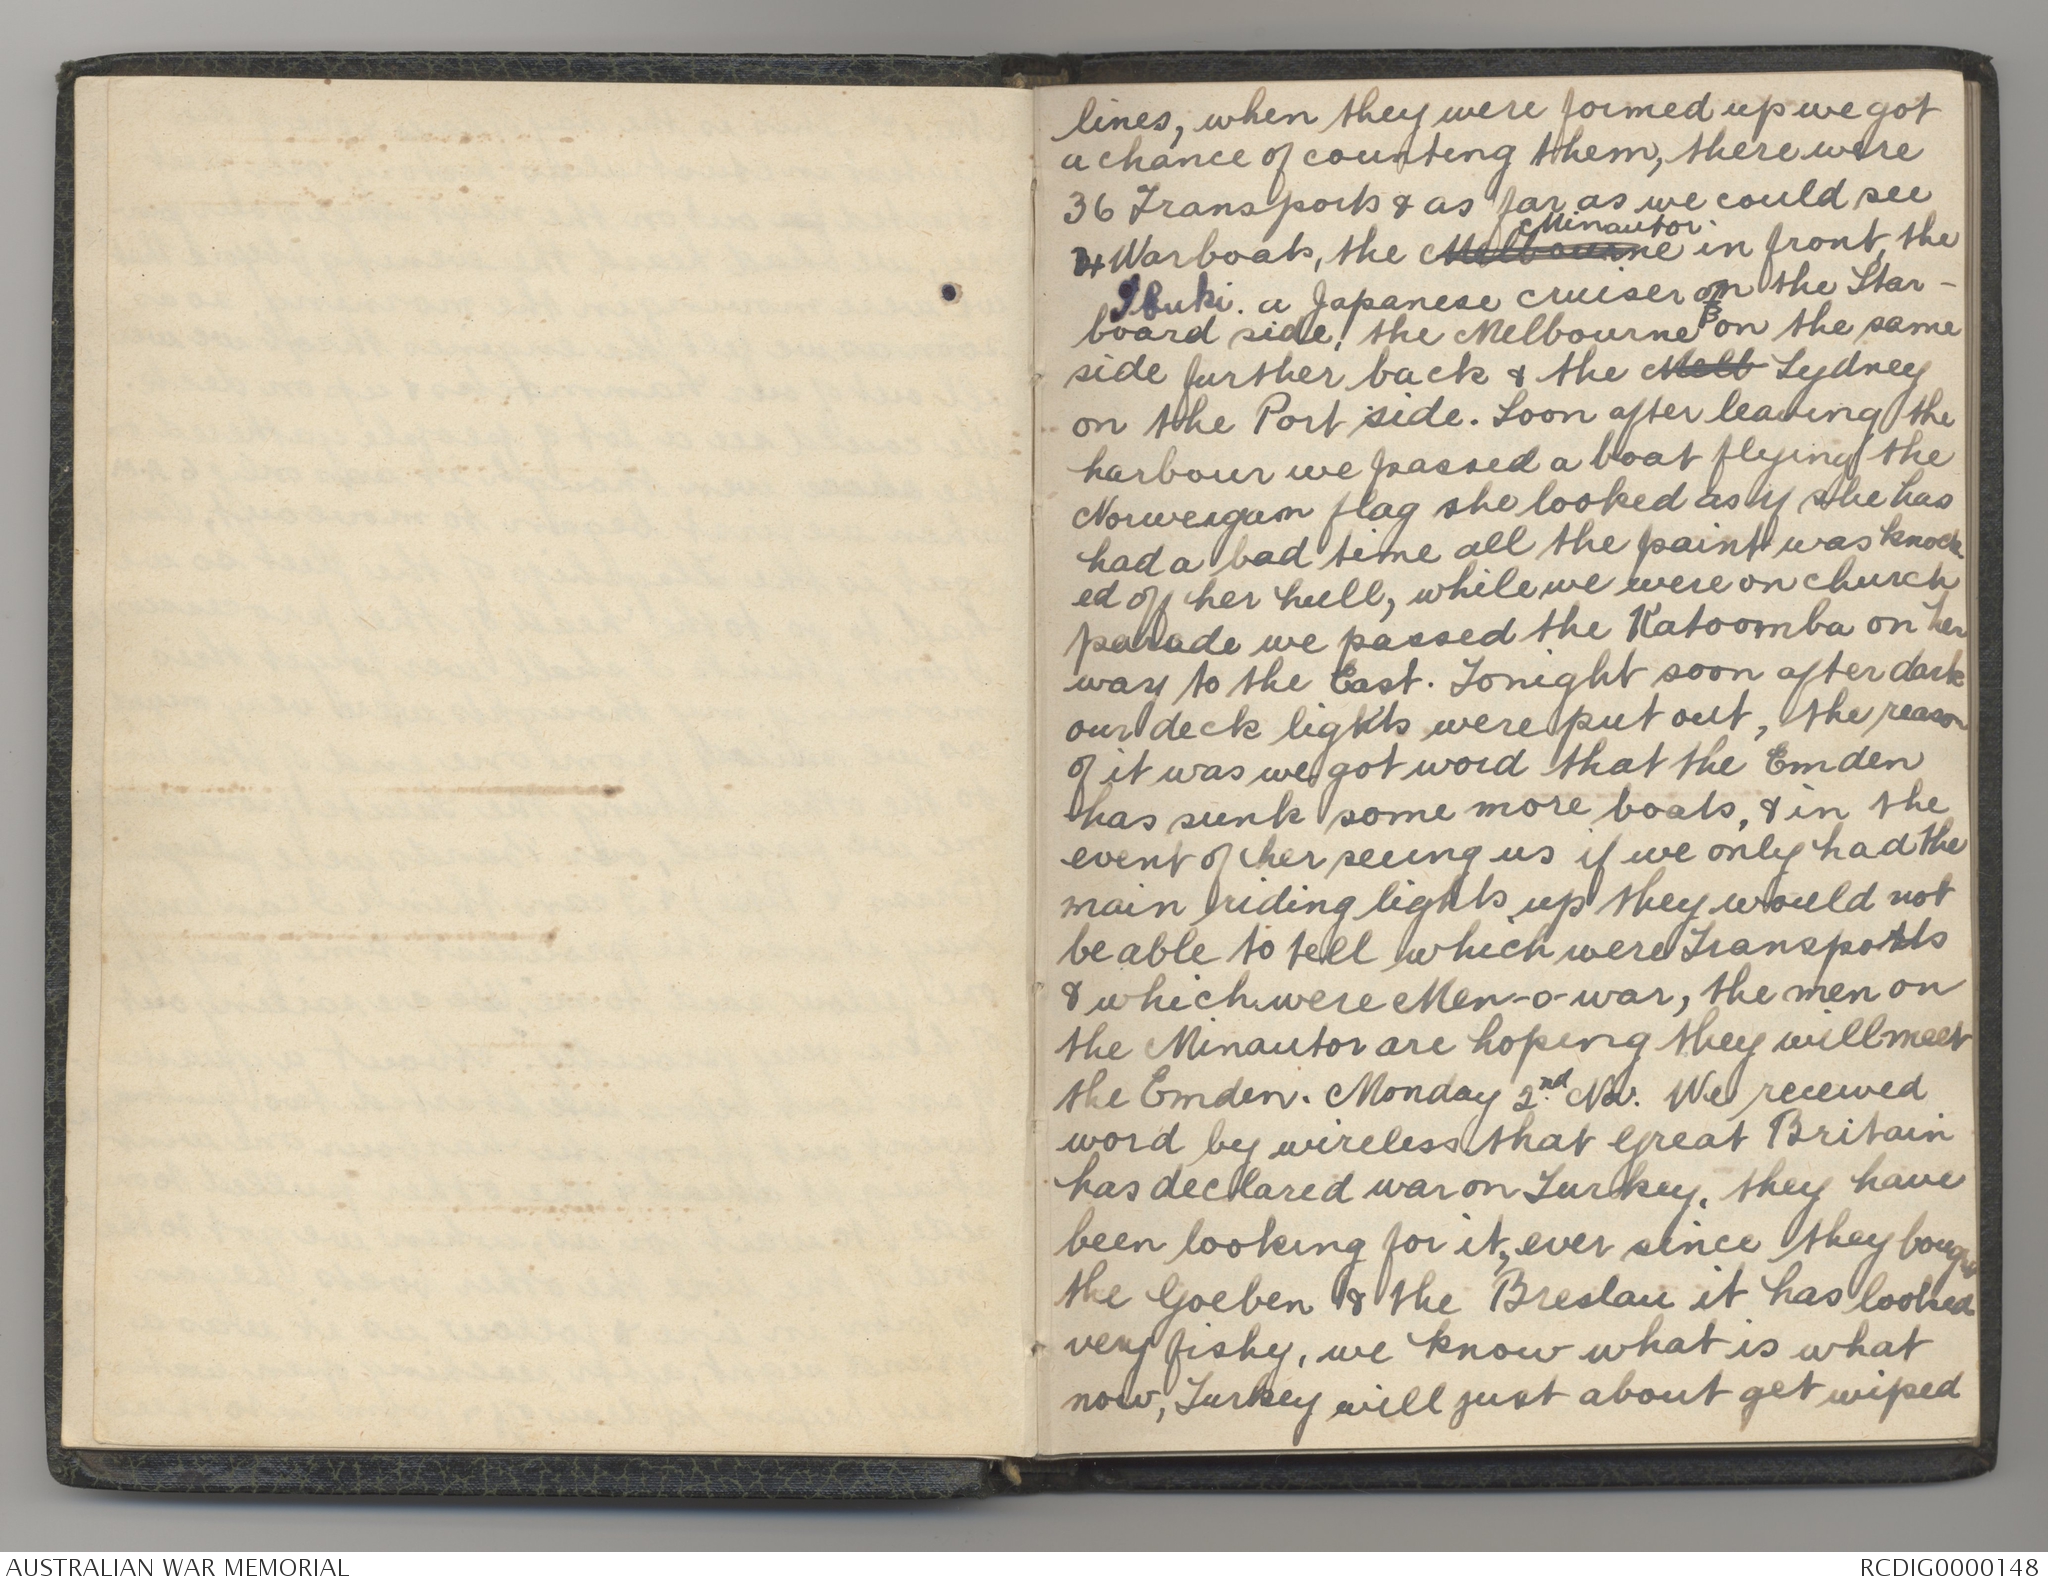 lines, when they were formed up we got
a chance of counting them, there were
36 Transports & as far as we could see
Minautor.
4 Warboats, the Melbourne in front, the
Ibuki. a Japanese cruiser on the Star-
board side, the Melbourne on the same
side further back & the Melb Sydney
on the Port side. Soon after leaving the
harbour we passed a boat flying the
Norweigan flag she looked as if she has
had a bad time all the paint was knock-
ed off her hull, while we were on church
parade we passed the Katoomba on her
way to the East. Tonight soon after dark
our deck lights were put out, the reason
of it was we got word that the Emden
has sunk some more boats, & in the
event of her seeing us if we only had the
main riding lights up they would not
be able to tell which were Transports
& which were Men-o-war, the men on
the Minautor are hoping they will meet
the Emden. Monday 2nd Nov. We received
word by wireless that Great Britain
has declared war on Turkey, they have
been looking for it, ever since they bought
the Goeben & the Breslau it has looked
very fishy, we know what is what
now, Turkey will just about get wiped
AUSTRALIAN WAR MEMORIAL
RCDIG0000148